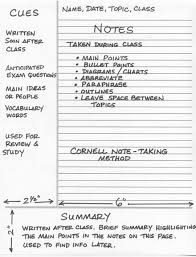 CUES
NAME, DATE, TOPIC, CLASS
NOTES
WRITTEN
SOON AFTER
CLASS
ANTICIPATED
EXAM QUESTIONS
MAIN IDEAS
OR PEOPLE
VOCABULARY
WORDS
USED FOR
REVIEW &
STUDY
TAKEN DURING CLASS
• MAIN POINTS
• BULLET POINTS
• DIAGRAMS/CHARTS
• ABBREVIATE
• PARAPHRASE
• OUTLINES
• LEAVE SPACE BETWEEN
TOPICS
CORNELL NOTE-TAKING
METHOD
2 1/2"
6"
2"
SUMMARY
WRITTEN AFTER CLASS, BRIEF SUMMARY HIGHLIGHTING
THE MAIN POINTS IN THE NOTES ON THIS PAGE.
USED TO FIND INFO LATER.